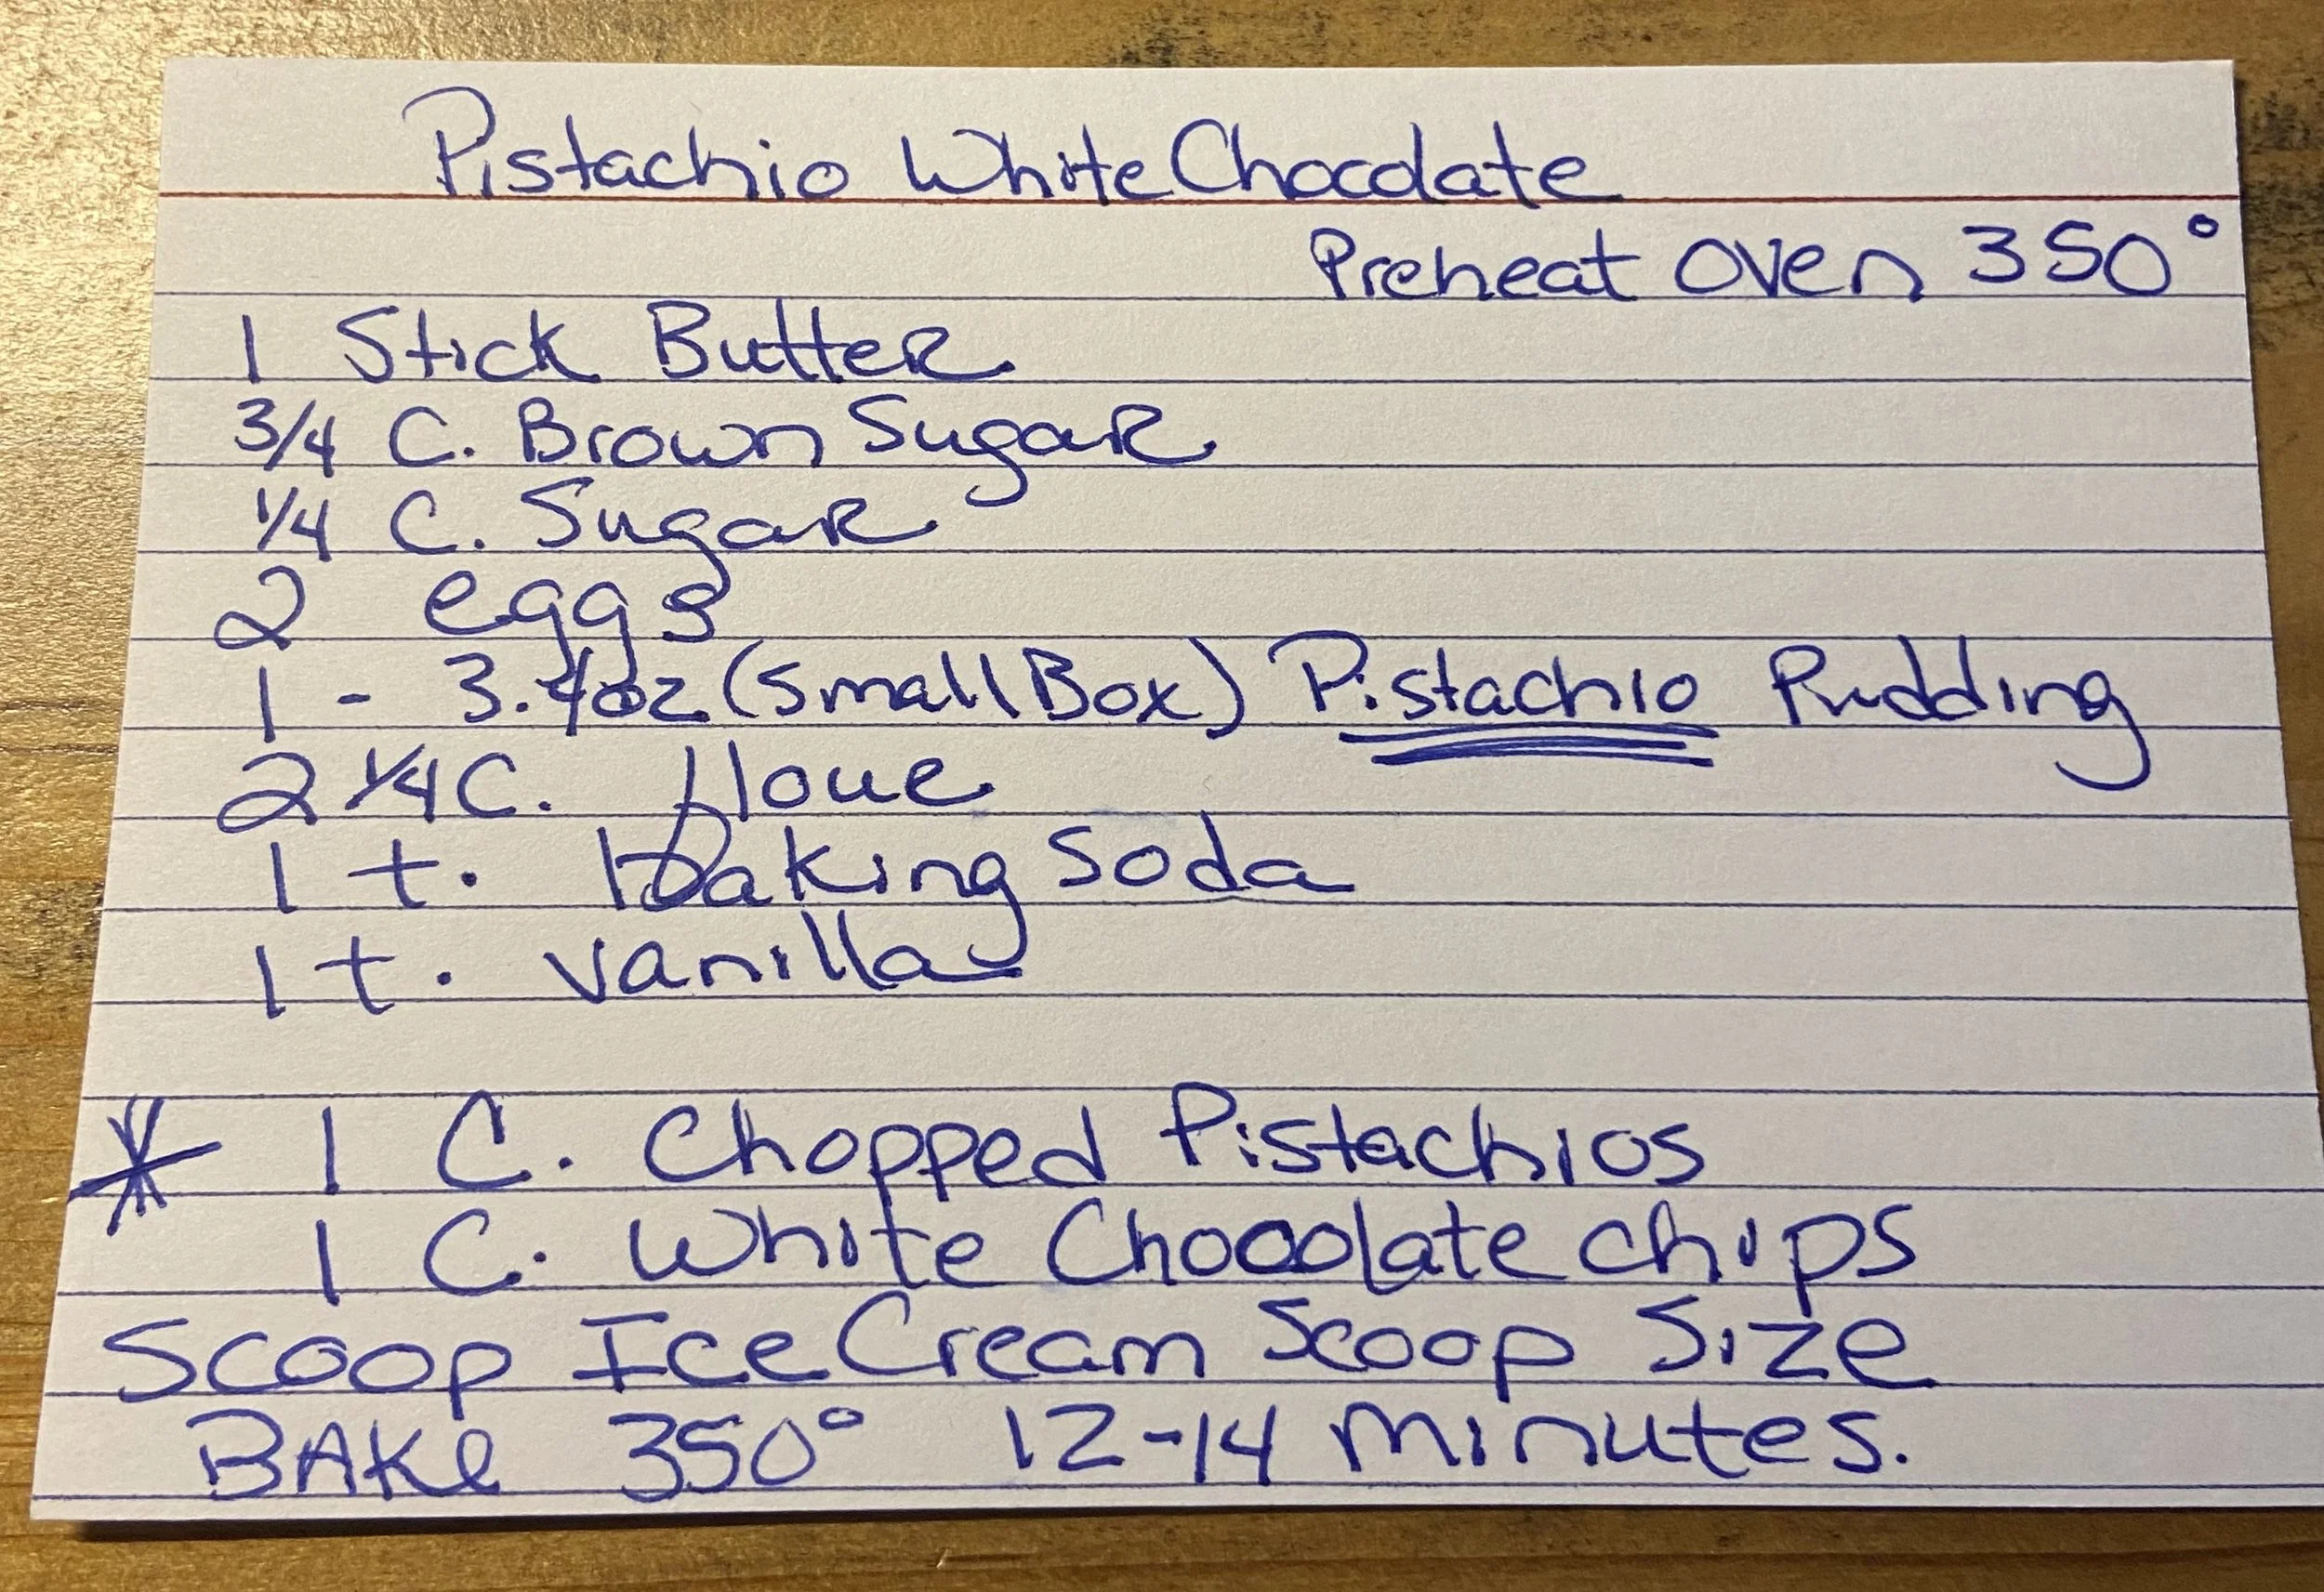 Pistachio White Chocolate
Preheat Oven 350°
1 Stick Butter
3/4 C. Brown Sugar
1/4 C. Sugar
2 eggs
1 - 3.4oz (Small Box) Pistachio Pudding
2 1/4 C. flour
1 t. baking Soda
1 t. vanilla
* 1 C. Chopped Pistachios
1 C. White Chocolate chips
Scoop Ice Cream Scoop Size
BAKe 350° 12-14 minutes.